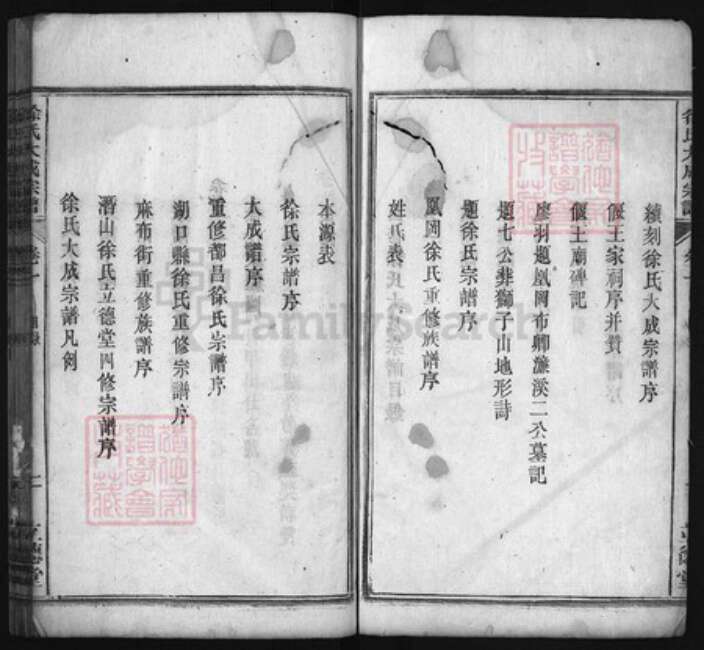 徐氏大成宗譜
卷一
立德堂
續刻徐氏大成宗譜序
偃王家祠序并贊
偃王廟碑記
廖羽題凰岡布卿濂溪二公墓記
題七公葬獅子山地形詩
題徐氏宗譜序
凰岡徐氏重修族譜序
姓氏表
本源表
徐氏宗譜序
大成譜序
重修都昌徐氏宗譜序
湖口縣徐氏重修宗譜序
麻布街重修族譜序
潛山徐氏立德堂四修宗譜序
徐氏大成宗譜凡例
徐氏大成宗譜
卷一
目錄
二
立德堂
FamilySearch